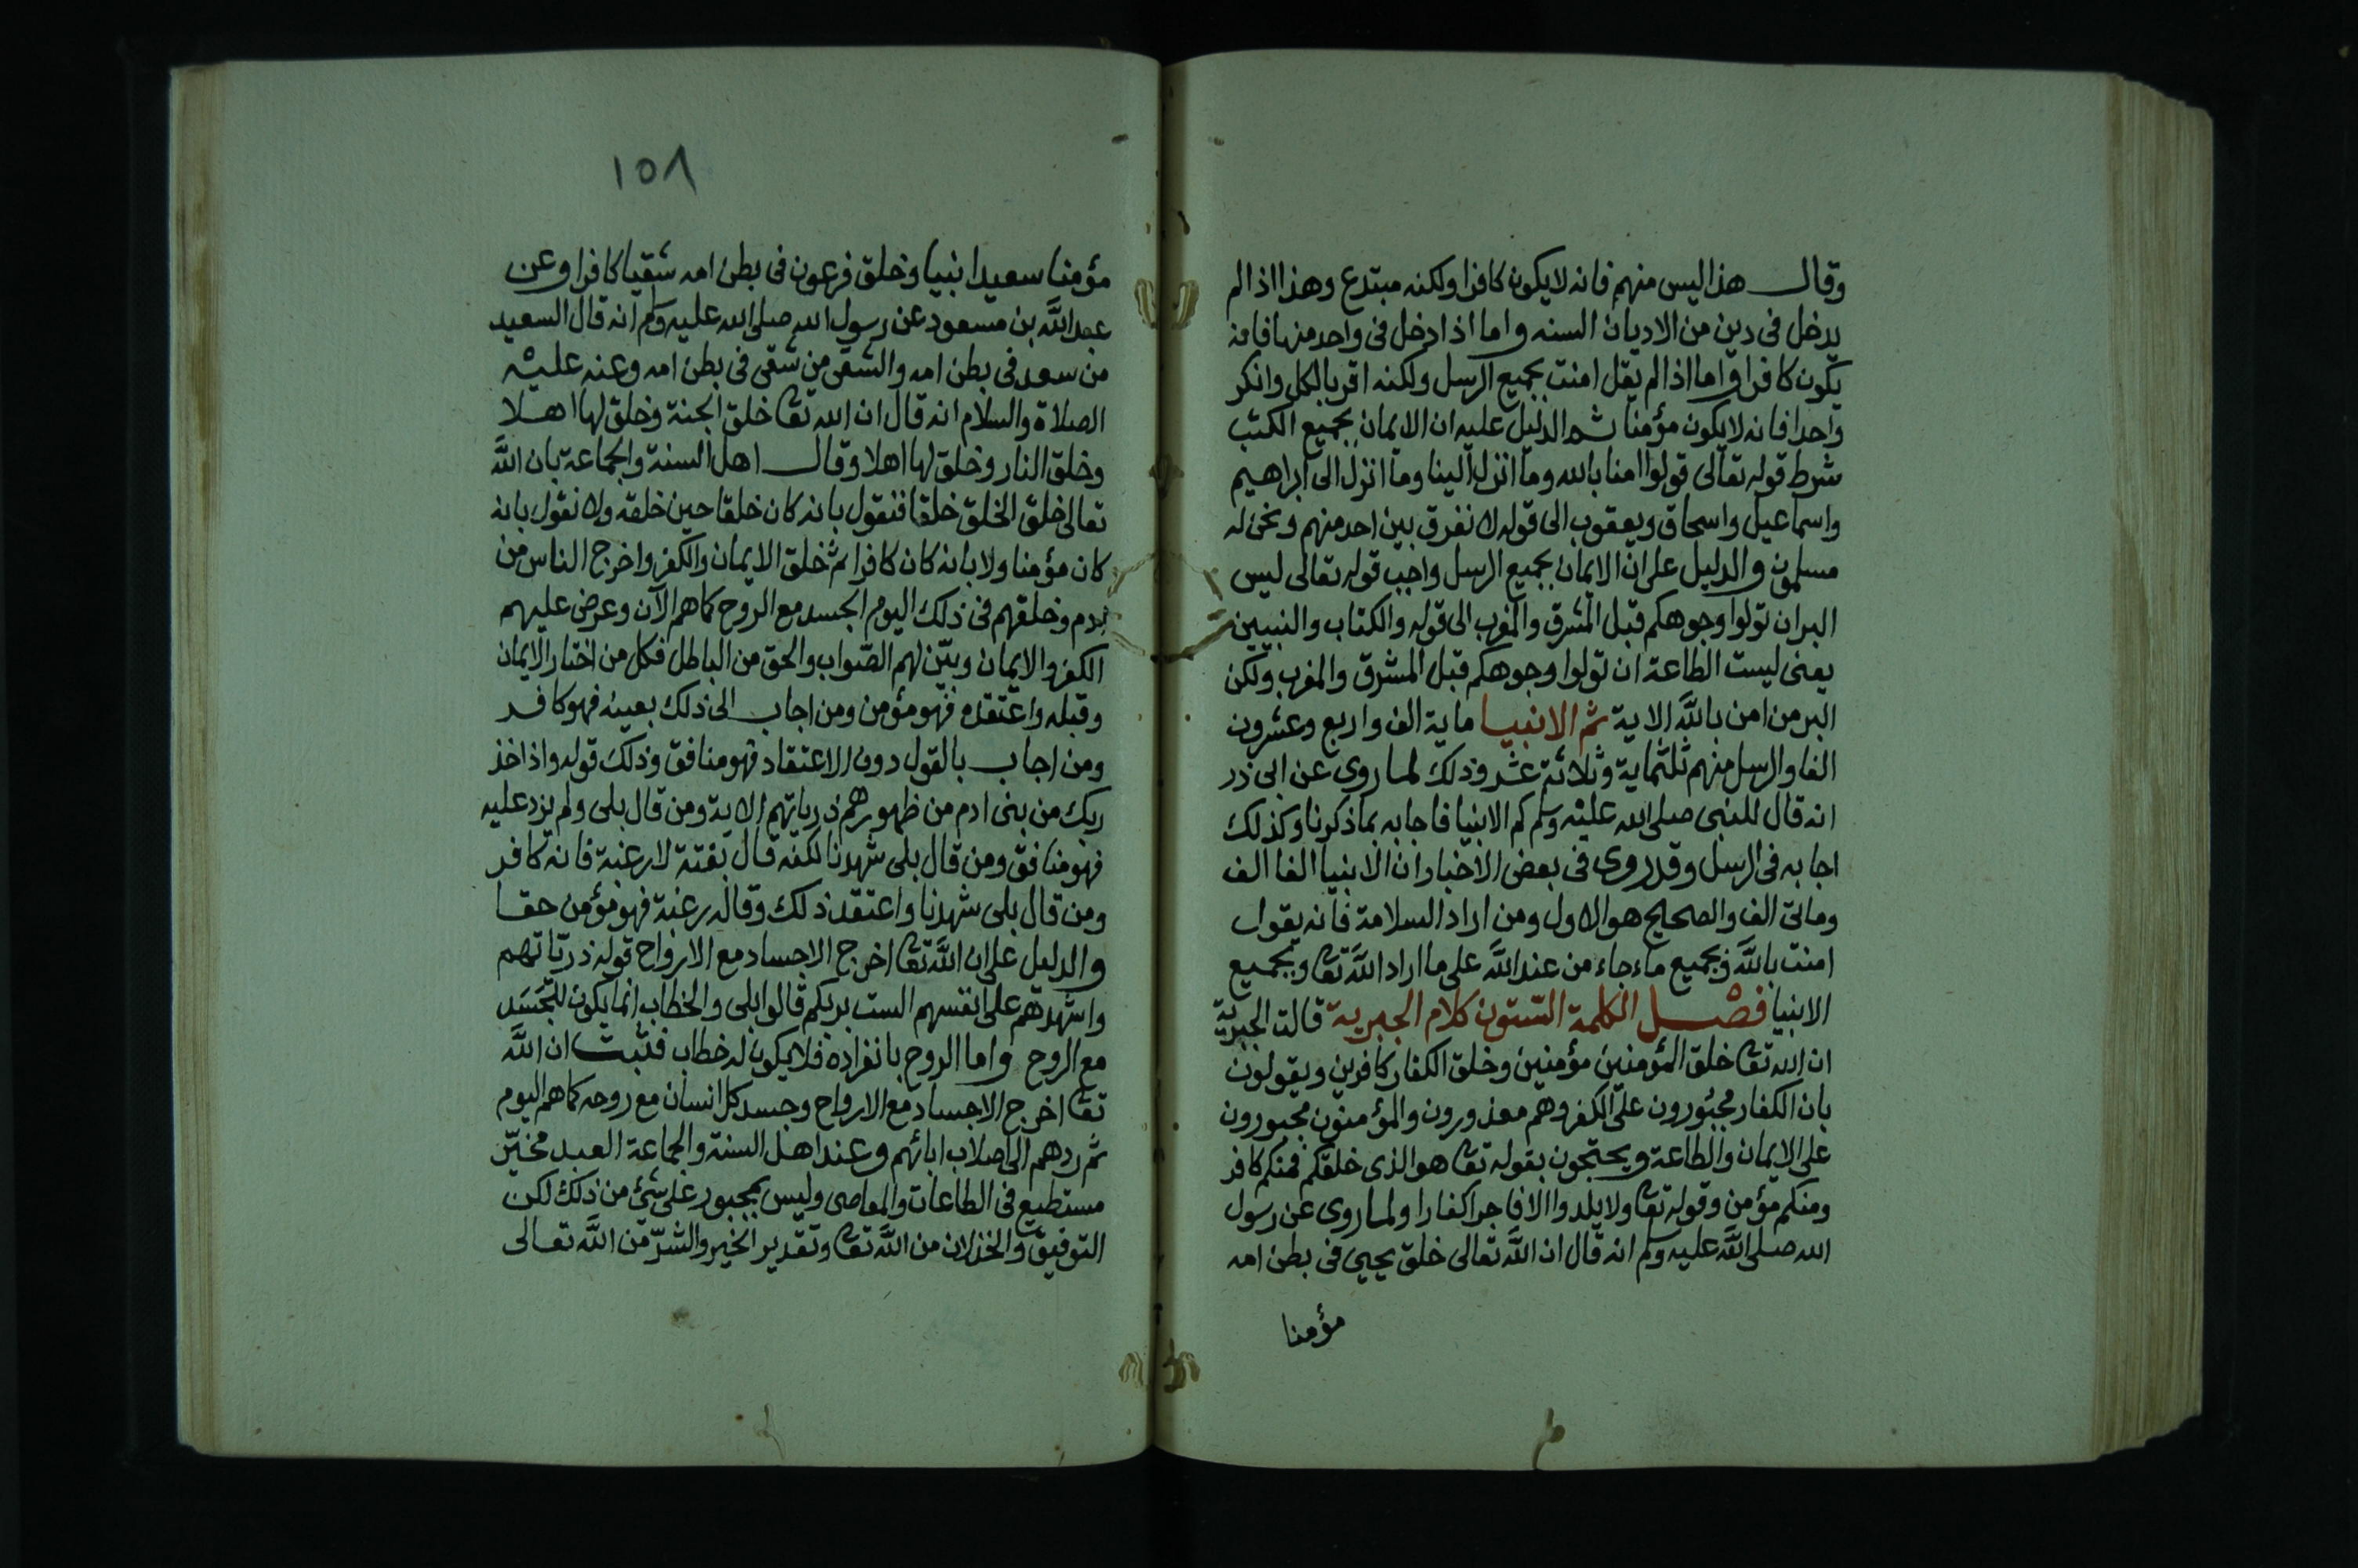 وقال هذا ليس منهم فانه لا يكون كافرا ولكنه مبتدع وهذا اذا لم
يدخل فى دين من الاديان السنه واما اذا دخل فى واحد منها فانه
يكون كافرا واما اذا لم يقل امنت بجميع الرسل ولكنه اقر بالكل وانكر
واحدا فانه لا يكون مؤمنا ثم الدليل عليه ان الايمان بجميع الكتب
شرط قوله تعالى قولوا امنا بالله وما انزل الينا وما انزل الى ابراهيم
واسماعيل واسحاق ويعقوب الى قوله لا نفرق بين احد منهم ونحن له
مسلمون والدليل على ان الايمان بجميع الرسل واجب قوله تعالى ليس
البر ان تولوا وجوهكم قبل المشرق والمغرب الى قوله والكتاب والنبيين
يعنى ليست الطاعة ان تولوا وجوهكم قبل المشرق والمغرب ولكن
البر من امن بالله الاية ثم الانبيا ماية الف واربع وعشرون
الفا والرسل منهم ثلثماية وثلاثة عشر وذلك لما روى عن ابى ذر
انه قال للنبى صلى الله عليه وسلم كم الانبيا فاجابه بما ذكرنا وكذلك
اجابه فى الرسل وقد روى فى بعض الاخبار ان الانبيا الفا الف
ومائتى الف والصحيح هو الاول ومن اراد السلامة فانه يقول
امنت بالله وبجميع ماء جاء من عند الله على ما اراد الله تعا وبجميع
الانبيا فصل الكلمة الستون كلام الجبرية قالت الجبرية
ان الله تعا خلق المؤمنين مؤمنين وخلق الكفار كافرين ويقولون
بان الكفار مجبورون على الكفر وهم معذورون والمؤمنون مجبورون
على الايمان والطاعة ويحتجون بقوله تعا هو الذى خلقكم فمنكم كافر
ومنكم مؤمن وقوله تعا ولا يلدوا الا فاجرا كفارا ولما روى عن رسول
الله صلى الله عليه وسلم انه قال ان الله تعالى خلق يحيى فى بطن امه
مؤمنا
١٥٨
مؤمنا سعيدا نبيا وخلق فرعون فى بطن امه شقيا كافرا وعن
عبد الله بن مسعود عن رسول الله صلى الله عليه وسلم انه قال السعيد
من سعد فى بطن امه والشقى من شقى فى بطن امه وعنه عليه
الصلاة والسلام انه قال ان الله تعا خلق الجنة وخلق لها اهلا
وخلق النار وخلق لها اهلا وقال اهل السنة والجماعة بان الله
تعالى خلق الخلق خلقا فنقول بانه كان خلقا حين خلقه ولا نقول بانه
كان مؤمنا ولا بانه كان كافرا ثم خلق الايمان والكفر واخرج الناس من
ادم وخلقهم فى ذلك اليوم الجسد مع الروح كما هم الآن وعرض عليهم
الكفر والايمان وبيّن لهم الصّواب والحق من الباطل فكل من اختار الايمان
وقبله واعتقده فهو مؤمن ومن اجاب الى ذلك بعينه فهو كافر
ومن اجاب بالقول دون الاعتقاد فهو منافق وذلك قوله واذ اخذ
ربك من بنى ادم من ظهورهم ذرياتهم الاية ومن قال بلى ولم يزد عليه
فهو منافق ومن قال بلى شهدنا لكنه قال بغتة لا رغبة فانه كافر
ومن قال بلى شهدنا واعتقد ذلك وقاله رغبة فهو مؤمن حقا
والدليل على ان الله تعا اخرج الاجساد مع الارواح قوله ذرياتهم
واشهدهم على انفسهم الست بربكم قالوا بلى والخطاب انما يكون للجسد
مع الروح واما الروح بانفراده فلا يكون له خطاب فثبت ان الله
تعا اخرج الاجساد مع الارواح وجسد كل انسان مع روحه كما هم اليوم
ثم ردهم الى اصلاب ابائهم وعند اهل السنة والجماعة العبد مخيّر
مستطيع فى الطاعات والمعاصى وليس بمجبور على شئ من ذلك لكن
التوفيق والخذلان من الله تعا وتقدير الخير والشرّ من الله تعالى